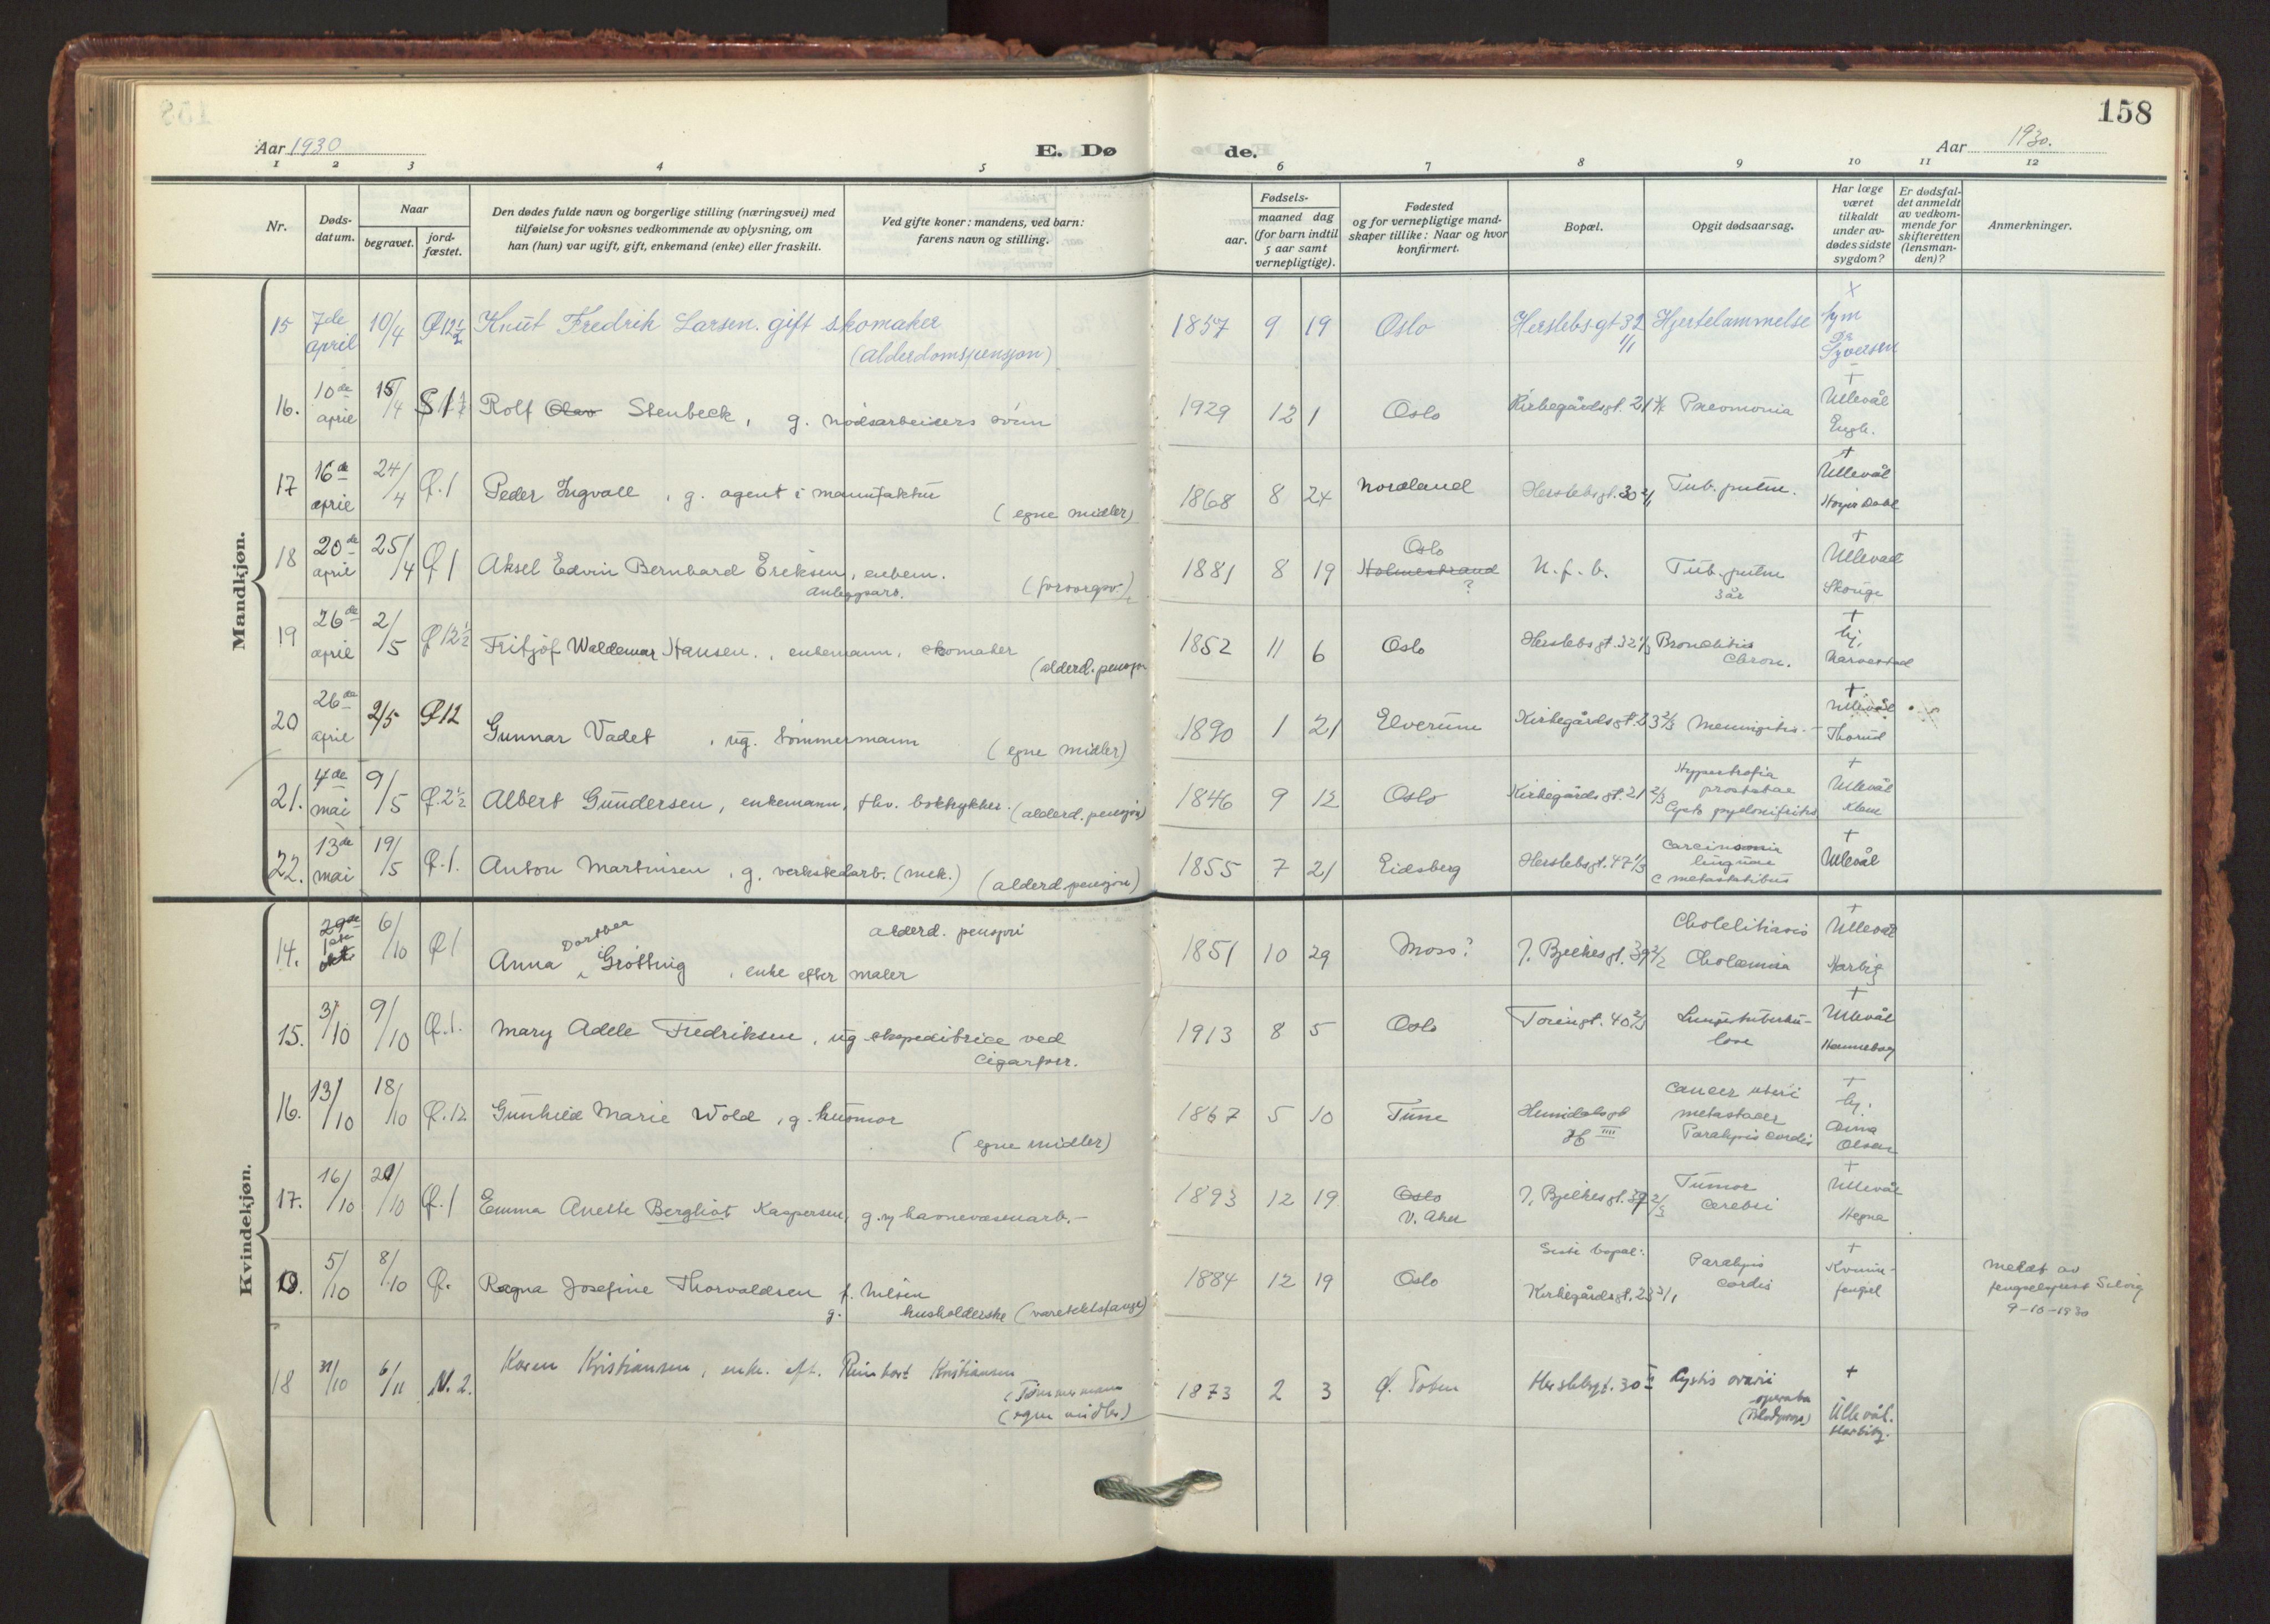 158
Aar 1930
E. Dø de.
Aar 1930.
1 2 3 4 5 6 7 8 9 10 11 12
Nr.
Døds-
datum.
Naar
begravet.
jord-
fæstet.
Den dødes fulde navn og borgerlige stilling (næringsvei) med
tilføielse for voksnes vedkommende av oplysning, om
han (hun) var ugift, gift, enkemand (enke) eller fraskilt.
Ved gifte koner: mandens, ved barn:
farens navn og stilling.
Fødsels-
aar.
maaned dag
(for barn indtil
5 aar samt
vernepligtige).
Fødested
og for vernepligtige mand-
skaper tillike: Naar og hvor
konfirmert.
Bopæl.
Opgit dødsaarsag.
Har læge
været
tilkaldt
under av-
dødes sidste
sygdom?
Er dødsfal-
det anmeldt
av vedkom-
mende for
skifteretten
(lensman-
den)?
Anmerkninger.
Mandkjøn.
15 7de april 10/4 Ø 12½ Knut Fredrik Larsen. gift skomaker
(alderdomspensjon)
1857 9 19 Oslo Herslebsgt 32 1/1 Hjertelammelse x hjm Dr
16. 10de april 15/4 S 1½ Rolf Olav Stenbeck, g. nødsarbeiders sønn
1929 12 1 Oslo Kirkegårdsgt. 21 Pneomonia + Ullevål
17 16de april 24/4 Ø. 1 Peder Ingvall, g. agent i manufaktur
(egne midler)
1868 8 24 Nordland Herslebsgt. 30 2/1 Tub. pulm. + Ullevål
18 20de april 25/4 Ø 1 Aksel Edvin Bernhard Eriksen, enkem.
anleggsarb. (forsorgsv.)
1881 8 19 Oslo Holmestrand ? U. f. b. Tub. pulm 3 år + Ullevål
19 26de april 2/5 Ø 12½ Fritjof Waldemar Hansen., enkemann, skomaker
(alderd. pensjon
1852 11 6 Oslo Herslebsgt. 32 1/3 Bronchitis chron. + hj. Narvestad
20 26de april 2/5 Ø 12 Gunnar Vadet, ug. tømmermann
(egne midler)
1890 1 21 Elverum Kirkegårdsgt. 23 2/3 Menningitis. + Ullevål Thorud
21. 4de mai 9/5 Ø. 2½ Albert Gundersen, enkemann, fhv. boktrykker. (alderd. pensjon)
1846 9 12 Oslo Kirkegårdsgt. 21 2/3 Hypertrofia prostatae Cysto pyelonifritis + Ullevål
22. 13de mai 19/5 Ø. 1. Anton Martinsen, g. verkstedarb. (mek.) (alderd. pensjon)
1855 7 21 Eidsberg Herslebsgt. 47 1/3 Carcinoma linguae c metastatibus + Ullevål
Kvindekjøn.
14. 6/10 Ø 1 Anna Dorthea Grøtting, enke efter maler
alderd. pensjon
1851 10 29 Moss? J. Bjelkesgt. 39 2/2 Cholelitiasis Cholæmia + Ullevål Harbitz
15. 3/10 9/10 Ø. 1. Mary Adele Fredriksen, ug ekspeditrice ved
Cigarforr.
1913 8 5 Oslo Toiengt. 40 2/3 Lungetuberku-
lose + Ullevål Hanneborg
16. 13/10 18/10 Ø. 12 Gunhild Marie Wold, g. husmor
(egne midler)
1867 5 10 Tune Cancer uteri metastaser Paralysis cordis + hj. Olsen
17. 16/10 20/10 Ø. 1 Emma Anette Bergliot Kaspersen, g. m havnevæsenarb.-
1893 12 19 Oslo V. Aker J. Bjelkesgt. 39 2/3 Tumor cerebri + Ullevål Hegna
5/10 8/10 Ø. Ragna Josefine Thorvaldsen f. Nilsen
g. husholderske (varetektsfange)
1884 12 19 Oslo Siste bopæl: Kirkegårdsgt. 23 3/1 Paralysis cordis + Kvinne-
fengsel
Meldt av
fengselsprest Selvig
9-10-1930
18 31/10 6/11 N. 2. Karen Kristiansen, enke. eft. Reinhart Kristiansen
(Tømmermann
(egne midler)
1873 2 3 Ø. Toten Herslebsgt. 30 Cystis ovarii operata (Blodpropp) + Ullevål. Harbitz.